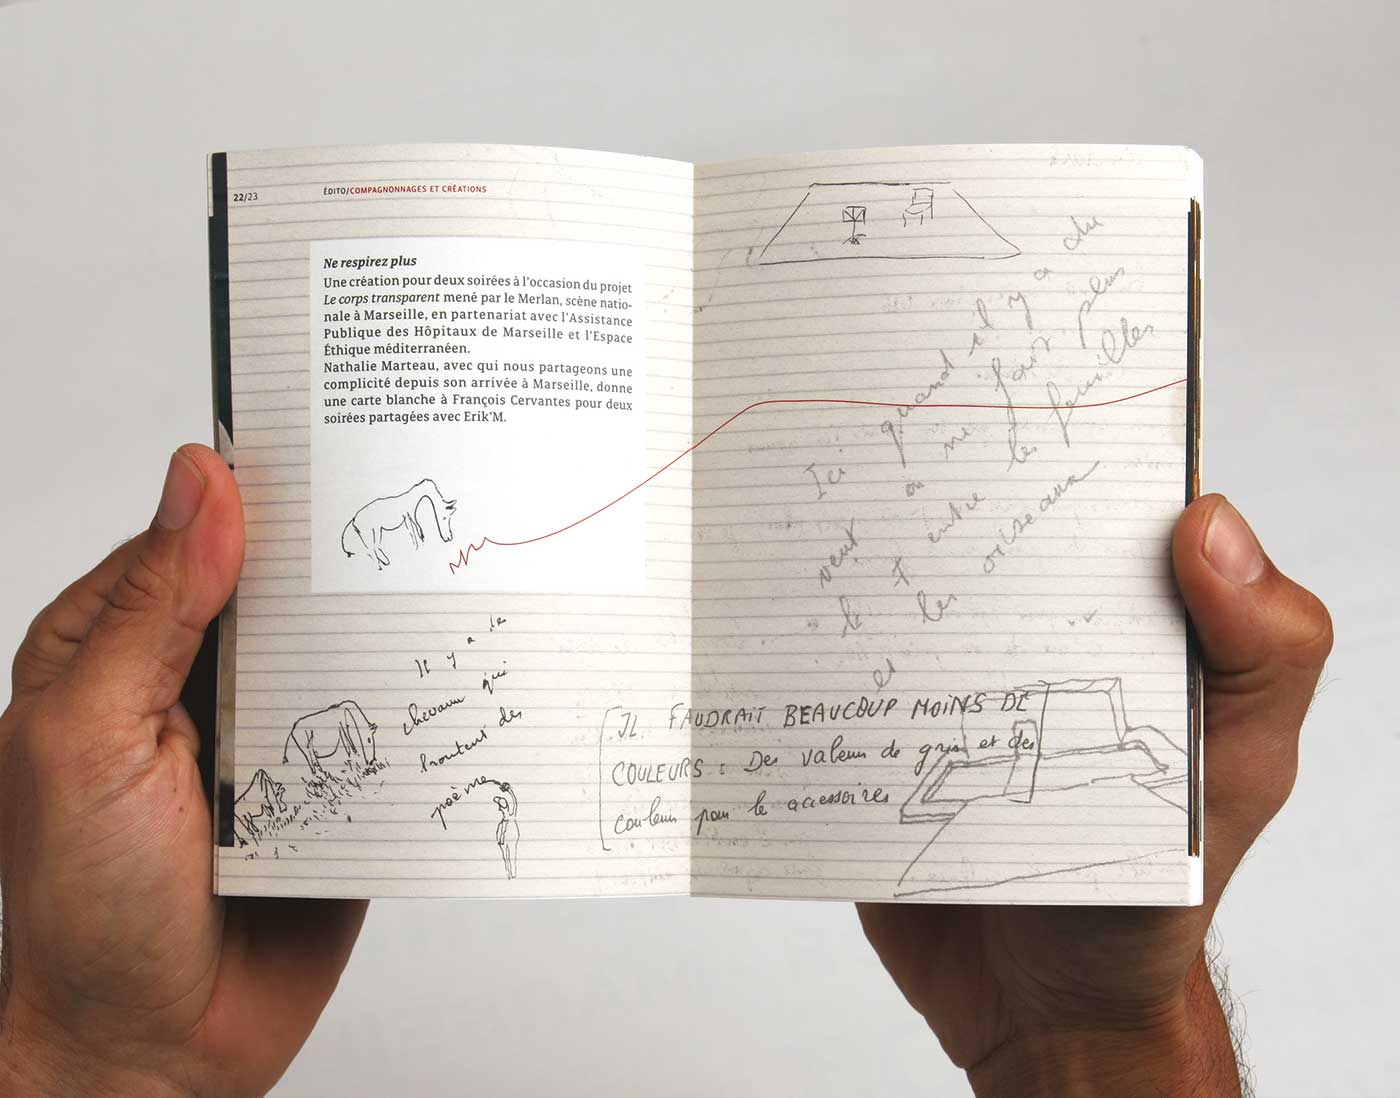 22/23
ÉDITO/COMPAGNONNAGES ET CRÉATIONS
Ne respirez plus
Une création pour deux soirées à l'occasion du projet
Le corps transparent mené par le Merlan, scène natio-
nale à Marseille, en partenariat avec l'Assistance
Publique des Hôpitaux de Marseille et l'Espace
Éthique méditerranéen.
Nathalie Marteau, avec qui nous partageons une
complicité depuis son arrivée à Marseille, donne
une carte blanche à François Cervantes pour deux
soirées partagées avec Erik'M.
Il y a de
chevaux qui
broutent des
poème
Ici quand il y a du
vent on ne fait plus
la ≠ entre les feuilles
et les oiseaux
IL FAUDRAIT BEAUCOUP MOINS DE
COULEURS : Des valeurs de gris et des
couleurs pour le accessoires